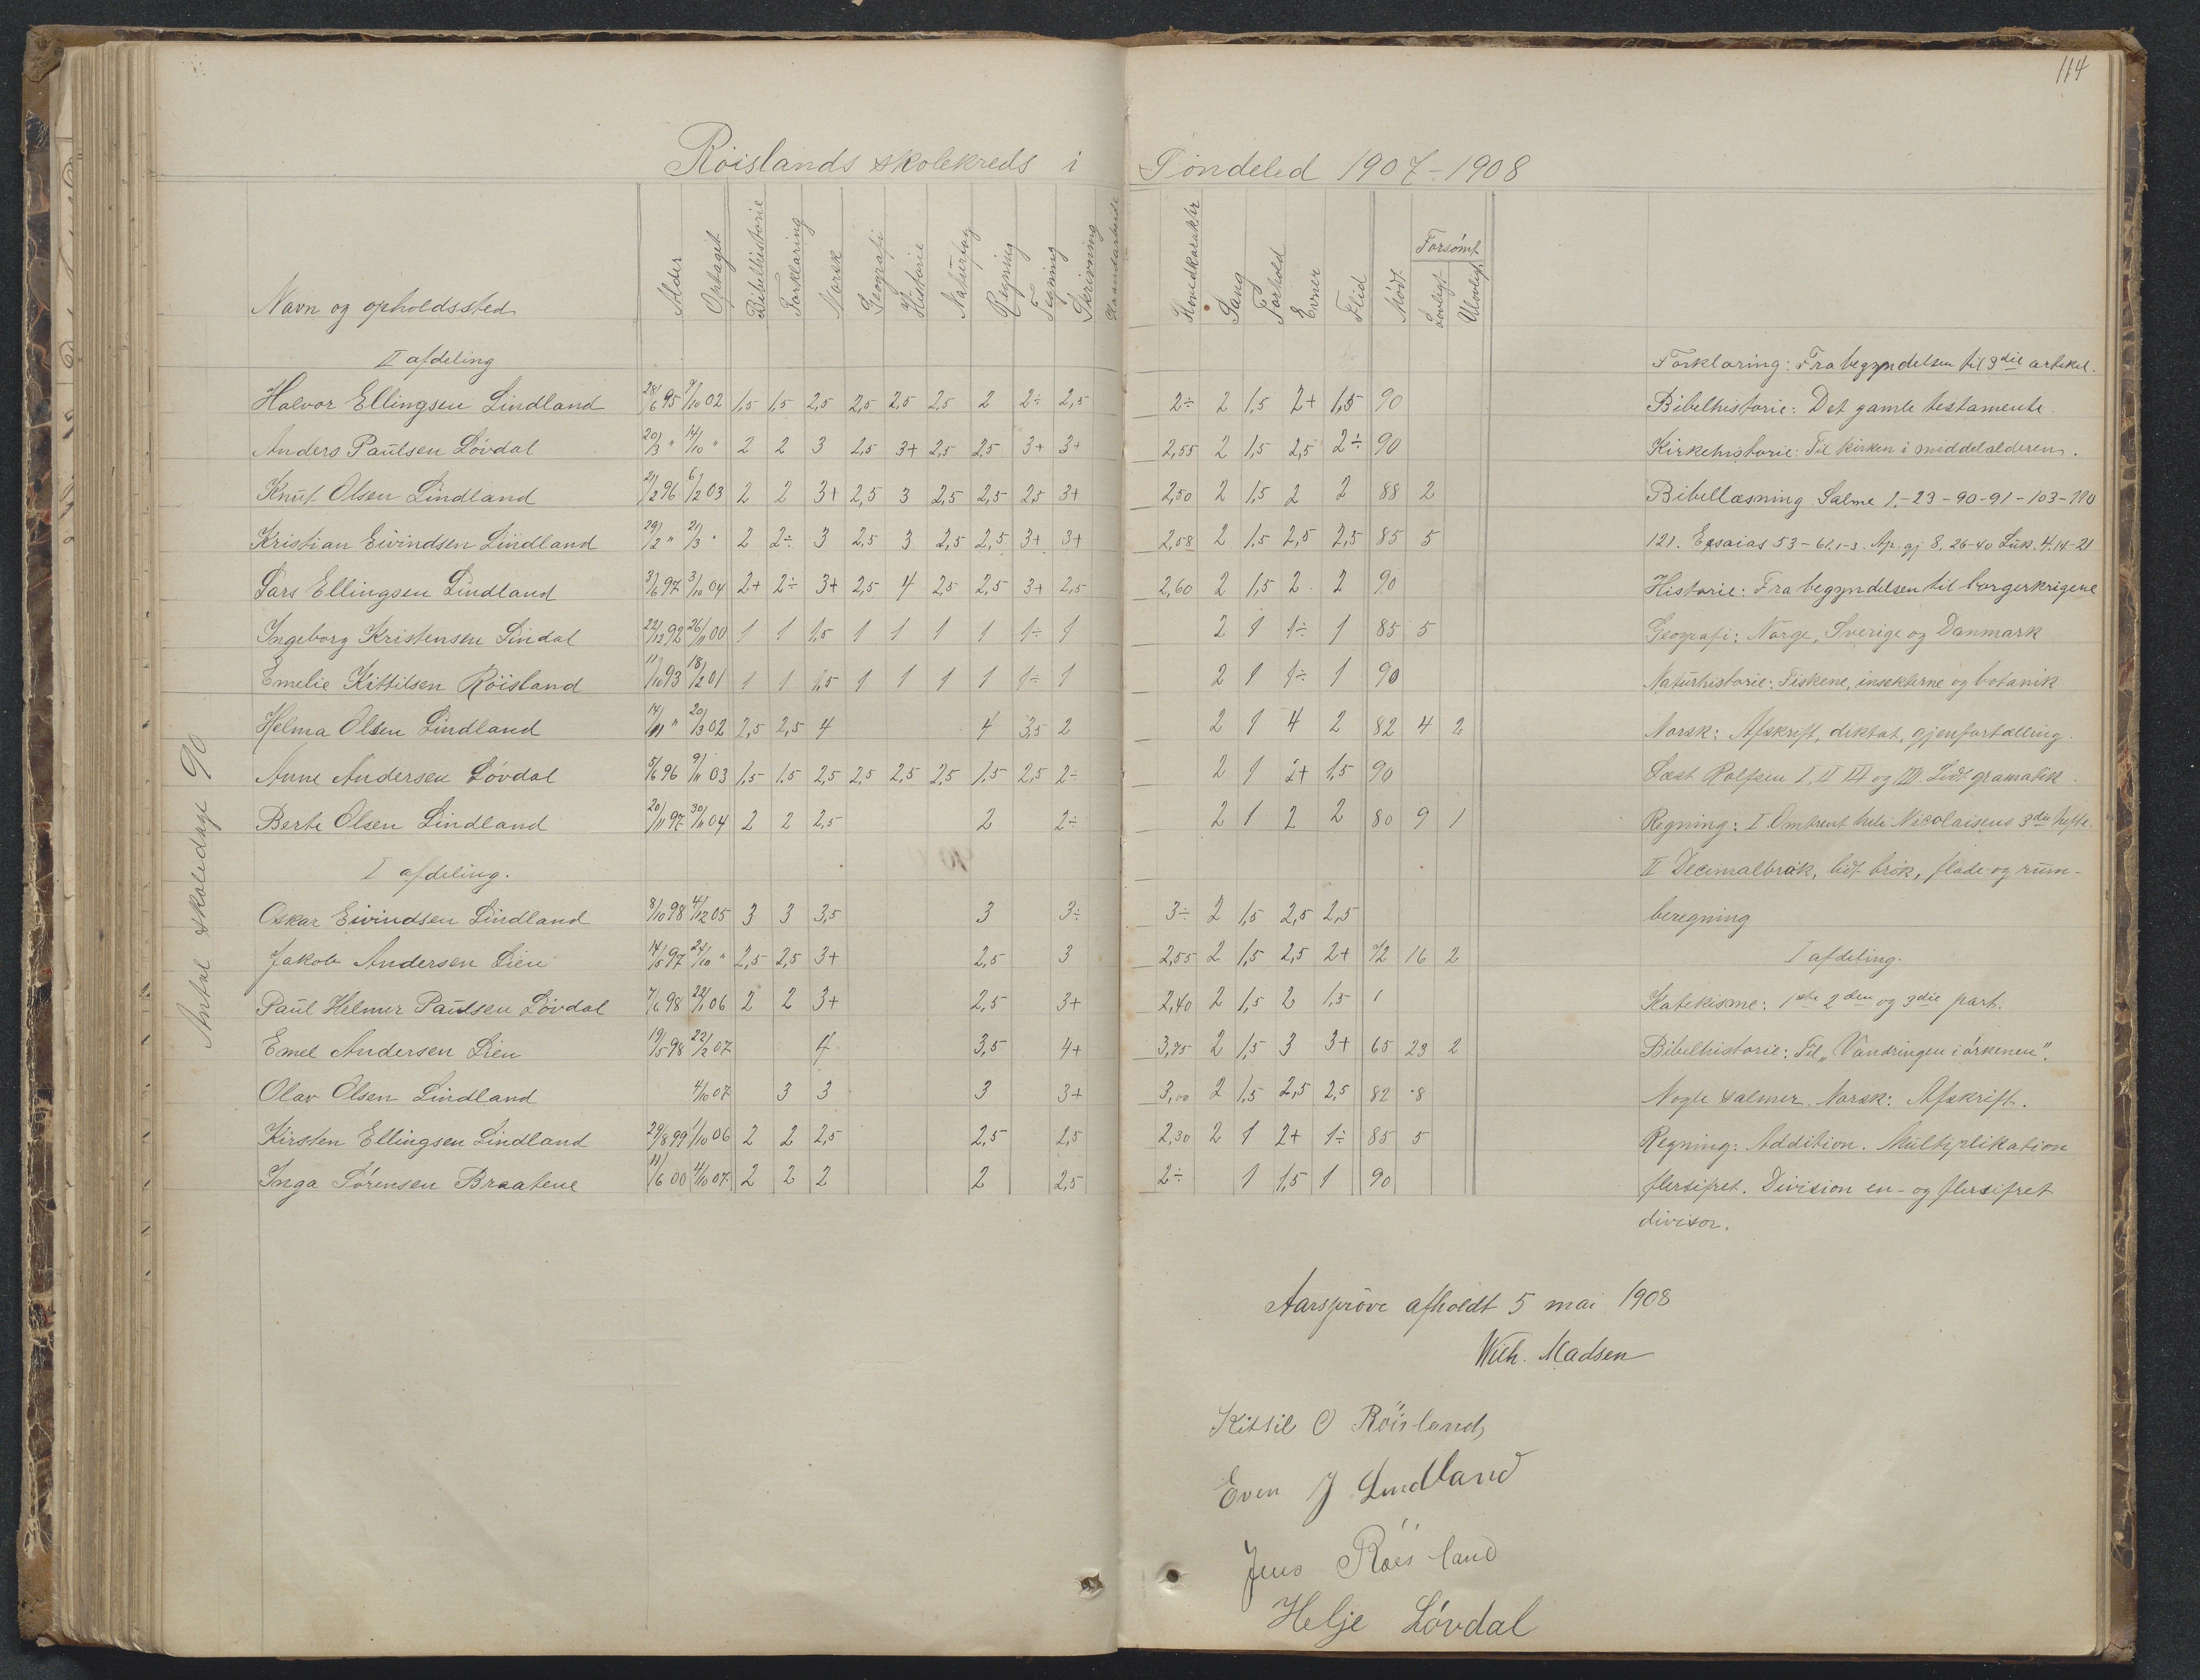 114
Röislands skolekreds i Söndeled 1907-1908
Navn og opholdssted Alder Optaget Bibelhistorie Forklaring Norsk Geografi Historie Naturfag Regning Tegning Skrivning Haandarbeide Hovedkarakter Sang Forhold Evner Flid Mödt Forsömt Lovligt Ulovligt
Antal skoledage 90
II afdeling
Halvor Ellingsen Lindland 28/6 95 9/10 02 1,5 1,5 2,5 2,5 2,5 2,5 2 2÷ 2,5 2÷ 2 1,5 2+ 1,5 90
Anders Paulsen Lövdal 20/3 " 14/10 " 2 2 3 2,5 3+ 2,5 2,5 3+ 3+ 2,55 2 1,5 2,5 2÷ 90
Knut Olsen Lindland 21/2 96 6/2 03 2 2 3+ 2,5 3 2,5 2,5 2,5 3+ 2,50 2 1,5 2 2 88 2
Kristian Eivindsen Lindland 29/2 " 21/3 " 2 2÷ 3 2,5 3 2,5 2,5 3+ 3+ 2,58 2 1,5 2,5 2,5 85 5
Lars Ellingsen Lindland 3/6 97 3/10 04 2+ 2÷ 3+ 2,5 4 2,5 2,5 3+ 2,5 2,60 2 1,5 2 2 90
Ingeborg Kristensen Lindal 22/12 92 26/11 00 1 1 1,5 1 1 1 1 1÷ 1 2 1 1÷ 1 85 5
Emelie Kittilsen Röisland 11/10 93 18/2 01 1 1 1,5 1 1 1 1 1÷ 1 2 1 1÷ 1 90
Helma Olsen Lindland 14/11 " 20/3 02 2,5 2,5 4 4 3,5 2 2 1 4 2 82 4 2
Anne Andersen Lövdal 5/6 96 9/11 03 1,5 1,5 2,5 2,5 2,5 2,5 1,5 2,5 2÷ 2 1 2+ 1,5 90
Berte Olsen Lindland 20/11 97 30/11 04 2 2 2,5 2 2÷ 2 1 2 2 80 9 1
I afdeling.
Oskar Eivindsen Lindland 8/10 98 4/12 05 3 3 3,5 3 3÷ 3÷ 2 1,5 2,5 2,5
Jakob Andersen Lien 14/5 97 24/10 " 2,5 2,5 3+ 2,5 3 2,55 2 1,5 2,5 2+ 72 16 2
Paul Helmer Paulsen Lövdal 7/6 98 22/1 06 2 2 3+ 2,5 3+ 2,40 2 1,5 2 1,5 1
Emel Andersen Lien 19/5 98 22/2 07 4 3,5 4+ 3,75 2 1,5 3 3+ 65 23 2
Olav Olsen Lindland 4/10 07 3 3 3 3+ 3,00 2 1,5 2,5 2,5 82 8
Kirsten Ellingsen Lindland 29/8 99 1/10 06 2 2 2,5 2,5 2,5 2,30 2 1 2+ 1÷ 85 5
Inga Sörensen Braatene 11/6 00 4/10 07 2 2 2 2 2,5 2÷ 1 1,5 1 90
Forklaring: Fra begyndelsen til 3die artikel.
Bibelhistorie: Det gamle testamente.
Kirkehistorie: Til kirken i middelalderen.
Bibellæsning. Salme 1-23-90-91-103-110
121. Esaias 53-61.1-3. Ap. gj 8. 26-40 Luk. 4.14-21
Historie: Fra begyndelsen til borgerkrigene
Geografi: Norge, Sverige og Danmark
Naturhistorie: Fiskene, insekterne og botanik
Norsk: Afskrift, diktat, gjenfortælling.
Læst Rolfsen I, II III og IV. Lidt gramatik.
Regning: I Omtrent hele Nicolaisens 3die hefte.
II Decimalbrøk, lidt brök, flade- og rum-
beregning
I afdeling.
Katekisme: 1ste 2den og 3die part.
Bibelhistorie: Til „Vandringen i örkenen".
Nogle salmer. Norsk: Afskrift.
Regning: Addition. Multiplikation
flersifret. Division en- og flersifret
divisor.
Aarspröve afholdt 5 mai 1908
Wilh. Madsen
Kittil O Röisland,
Even J Lindland
Jens Röisland
Helje Lövdal